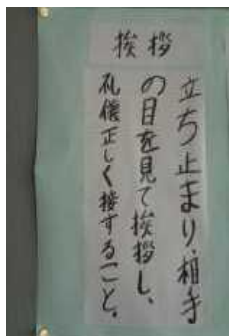 挨拶
立ち止まり、相手
の目を見て挨拶し、
礼儀正しく接すること。